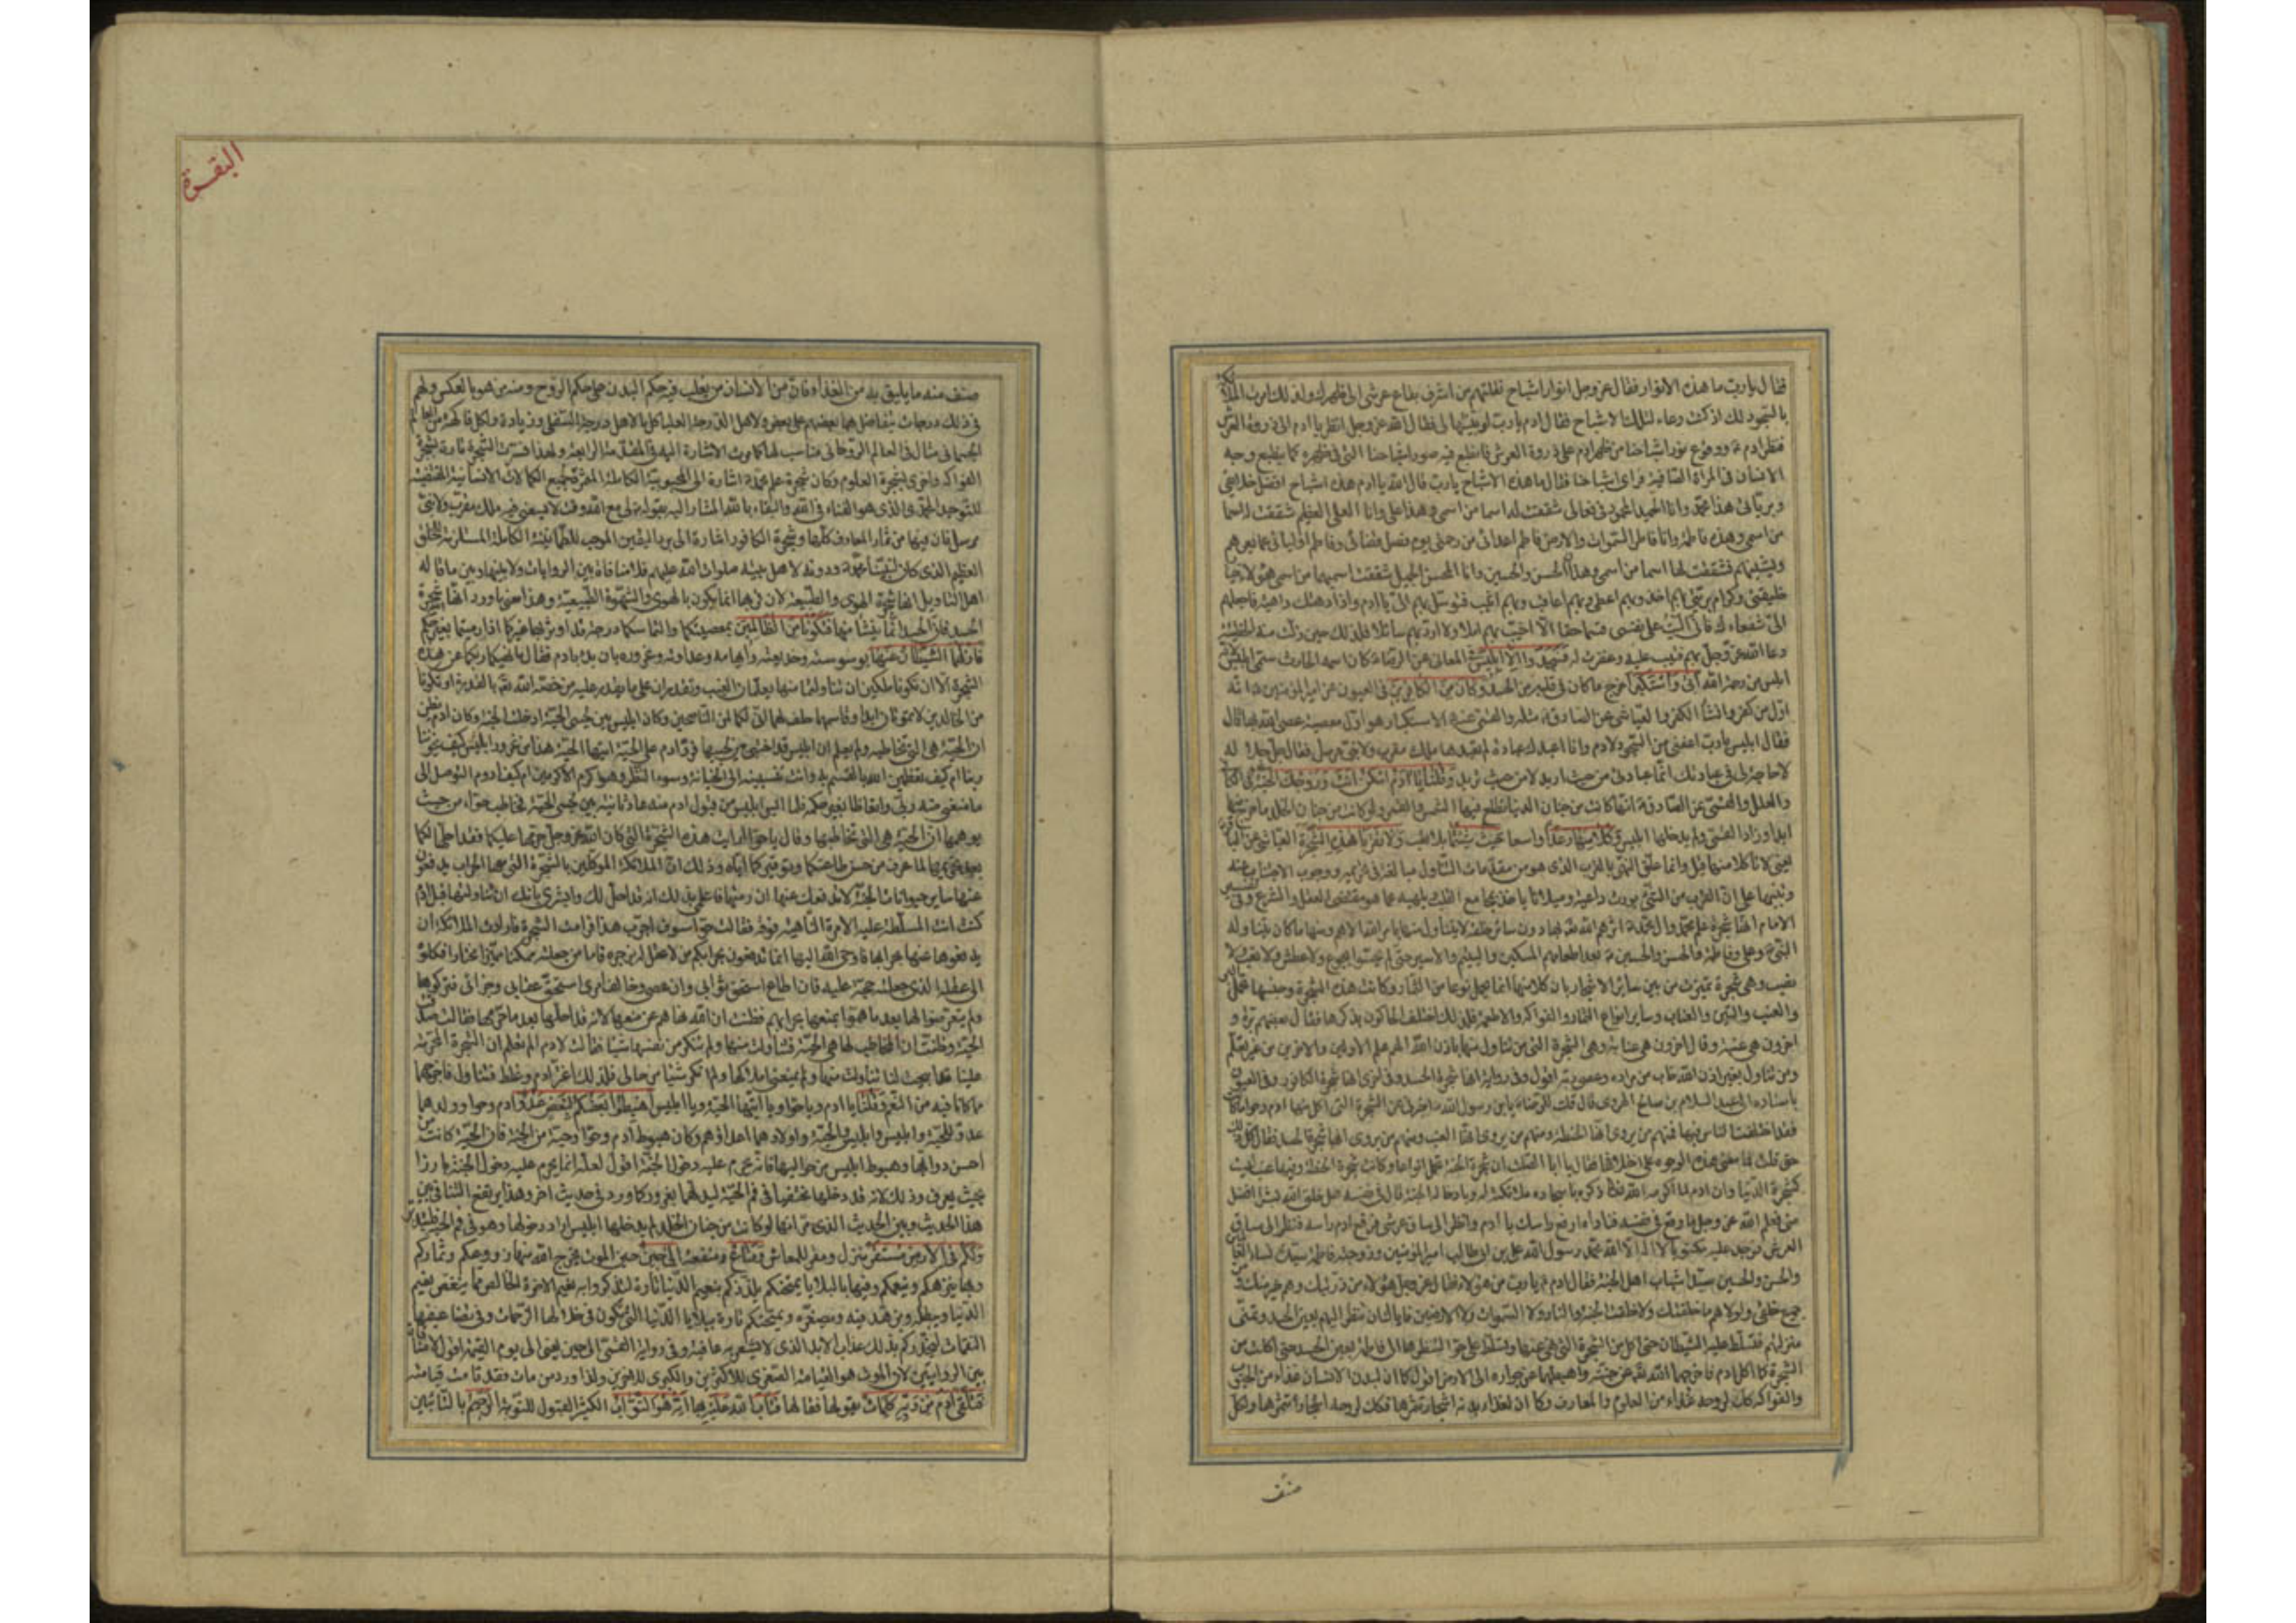 فقال يا رب ما هذه الانوار فقال عز وجل انوار اشباح نقلتهم من اشرف بقاع عرشى الى ظهرك ولذلك امرت الملائكة
بالسجود لك اذ كنت وعاء لتلك الاشباح فقال ادم يا رب لو بينتها لى فقال الله عز وجل انظر يا ادم الى ذروة العرش
فنظر ادم ووقع نور اشباحنا من ظهر ادم على ذروة العرش فانطبع فيه صور اشباحنا التى فى ظهره كما ينطبع وجه
الانسان فى المراة الصافية فراى اشباحنا فقال ما هذه الاشباح يا رب قال الله يا ادم هذه اشباح افضل خلايقى
وبرياتى هذا محمد وانا الحميد المحمود فى فعالى شققت له اسما من اسمى وهذا على وانا العلى العظيم شققت له اسما
من اسمى وهذه فاطمة وانا فاطر السموات والارض فاطم اعدائى من رحمتى يوم فصل قضائى وفاطم اوليائى عما يعرهم
ويشينهم فشققت لها اسما من اسمى وهذا الحسن والحسين وانا المحسن المجمل شققت اسميهما من اسمى هؤلاء خيار
خليقتى وكرام بريتى بهم اخذ وبهم اعطى وبهم اعاقب وبهم اثيب فتوسل بهم الى يا ادم واذا دهتك داهية فاجعلهم
الى شفعاءك فانى اليت على نفسى قسما حقا الا اخيب بهم املا ولا ارد بهم سائلا فلذلك حين زلت منه الخطيئة
دعا الله عز وجل بهم فتيب عليه وغفرت له فسجدوا الا ابليس المعانى عن الرضا كان اسمه الحارث سمى ابليس لانه
ابلس من رحمة الله ابى واستكبر اخرج ما كان فى قلبه من الحسد وكان من الكافرين فى العيون عن امير المؤمنين انه
اول من كفر وانشأ الكفر والعياشى عن الصادق مثله والقمى عنه الاستكبار هو اول معصية عصى الله بها قال
فقال ابليس يا رب اعفنى من السجود لادم وانا اعبدك عبادة لم يعبدها ملك مقرب ولا نبى مرسل فقال جل جلاله
لا حاجة لى فى عبادتك انما عبادتى من حيث اريد لا من حيث تريد وقلنا يا ادم اسكن انت وزوجك الجنة فى الكافى
والعلل والقمى عن الصادق انها كانت من جنان الدنيا تطلع فيها الشمس والقمر ولو كانت من جنان الخلد ما خرج منها
ابدا وزاد القمى ولم يدخلها ابليس وكلا منها رغدا واسعا حيث شئتما بلا تعب ولا تقربا هذه الشجرة العياشى عن الباقر
يعنى لا تاكلا منها قيل وانما علق النهى بالقرب الذى هو من مقدمات التناول مبالغة فى تحريمه ووجوب الاجتناب عنه
وتنبيها على ان القرب من الشئ يورث داعية وميلا ما ياخذ بمجامع القلب ويلهيه عما هو مقتضى العقل والشرع وفى تفسير
الامام انها شجرة علم محمد وال محمد اثرهم الله تعالى بها دون سائر خلقه لا يتناول منها بامر الله الا هم ومنها ما كان يتناوله
النبى وعلى وفاطمة والحسن والحسين بعد اطعامهم المسكين واليتيم والاسير حتى لم يحسوا بجوع ولا عطش ولا تعب ولا
نصب وهى شجرة تميزت من بين سائر الاشجار بان كلا منها انما يحمل نوعا من الثمار وكانت هذه الشجرة وجنسها تحمل البر
والعنب والتين والعناب وساير انواع الثمار والفواكه والاطعمة فلذلك اختلف الحاكون بذكرها فقال بعضهم برة و
اخرون هى عنبة وقال اخرون هى عنابة وهى الشجرة التى من تناول منها باذن الله الهم علم الاولين والاخرين من غير تعلم
ومن تناول بغير اذن الله خاب من مراده وعصى ربه اقول وفى رواية انها شجرة الحسد وفى اخرى انها شجرة الكافور وفى العيون
باسناده الى عبد السلام بن صالح الهروى قال قلت للرضا يابن رسول الله اخبرنى عن الشجرة التى اكل منها ادم وحوا ما كانت
فقد اختلف الناس فيها فمنهم من يروى انها الحنطة ومنهم من يروى انها العنب ومنهم من يروى انها شجرة الحسد فقال كل ذلك
حق قلت فما معنى هذه الوجوه على اختلافها فقال يا ابا الصلت ان شجرة الجنة تحمل انواعا وكانت شجرة الحنطة وفيها عنب ليست
كشجرة الدنيا وان ادم لما اكرمه الله تعالى ذكره باسجاده ملائكته له وبادخاله الجنة قال فى نفسه هل خلق الله بشرا افضل
منى فعلم الله عز وجل ما وقع فى نفسه فناداه ارفع راسك يا ادم وانظر الى ساق عرشى فرفع ادم راسه فنظر الى ساق
العرش فوجد عليه مكتوبا لا اله الا الله محمد رسول الله على بن ابى طالب امير المؤمنين وزوجته فاطمة سيدة نساء العالمين
والحسن والحسين سيدا شباب اهل الجنة فقال ادم يا رب من هؤلاء فقال عز وجل هؤلاء من ذريتك وهم خير منك ومن
جميع خلقى ولولاهم ما خلقتك ولا خلقت الجنة والنار ولا السموات ولا الارضين فاياك ان تنظر اليهم بعين الحسد وتمنى
منزلتهم فتسلط عليه الشيطان حتى اكل من الشجرة التى نهى عنها وتسلط على حوا لنظرها الى فاطمة بعين الحسد حتى اكلت من
الشجرة كما اكل ادم فاخرجهما الله تعالى عن جنته واهبطهما عن جواره الى الارض اقول كما ان لبدن الانسان غذاء من الحبوب
والفواكه كذلك لروحه غذاء من العلوم والمعارف وكما ان لغذاء بدنه اشجارا تثمرها فكذلك لروحه اشجارا تثمرها ولكل
صنف
البقرة
صنف منه ما يليق به من الغذا فان من الانسان من يغلب فيه حكم البدن على حكم الروح ومنه من هو بالعكس ولهم
فى ذلك درجات يتفاضل بها بعضهم على بعض ولاهل الدرجة العليا كل ما لاهل الدرجة السفلى وزيادة ولكل فاكهة من العالم
الجسمانى مثال فى العالم الروحانى مناسب لها كما مرت الاشارة اليه فى المقدمة الرابعة ولهذا فسرت الشجرة تارة بشجرة
الفواكه واخرى بشجرة العلوم وكان شجرة علم محمد اشارة الى المحبوبية الكاملة المثمرة لجميع الكمالات الانسانية المقتضية
للتوحيد المحمدى الذى هو الفناء فى الله والبقاء بالله المشار اليه بقوله لى مع الله وقت لا يسعنى فيه ملك مقرب ولا نبى
مرسل فان فيها من ثمار المعارف كلها وشجرة الكافور اشارة الى برد اليقين الموجب للطمانينة الكاملة المستلزمة للخلق
العظيم الذى كان لنبينا محمد ودونه لاهل بيته صلوات الله عليهم فلا منافاة بين الروايات ولا بينها وبين ما قاله
اهل التاويل انها شجرة الهوى والطبيعة لان قربها انما يكون بالهوى والشهوة الطبيعية وهذا معنى ما ورد انها شجرة
الحسد فان الحسد انما ينشأ منها فتكونا من الظالمين بمعصيتكما والتماسكما درجة قد اوثر بها غيركما اذا رمتما بغير حكم
فازلهما الشيطان عنها بوسوسته وخديعته وايهامه وعداوته وغروره بان بدء بادم فقال ما نهيكما ربكما عن هذه
الشجرة الا ان تكونا ملكين ان تناولتما منها تعلمان الغيب وتقدران على ما يقدر عليه من خصه الله تعالى بالقدرة او تكونا
من الخالدين لا تموتان ابدا وقاسمهما حلف لهما انى لكما لمن الناصحين وكان ابليس بين لحيى الحية ادخلته الجنة وكان ادم يظن
ان الحية هى التى تخاطبه ولم يعلم ان ابليس قد اختبى بين لحييها فرد ادم على الحية ايتها الحية هذا من غرور ابليس كيف يخوننا
ربنا ام كيف تعظمين الله بالقسم به وانت تنسبينه الى الخيانة وسوء النظر وهو اكرم الاكرمين ام كيف اروم التوصل الى
ما منعنى منه ربى واتعاطاه بغير حكمه فلما ايس ابليس من قبول ادم منه عاد ثانية بين لحيى الحية فخاطب حواء من حيث
يوهمها ان الحية هى التى تخاطبها وقال يا حوا ارايت هذه الشجرة التى كان الله عز وجل حرمها عليكما فقد احلها لكما
بعد تحريمها لما عرف من حسن طاعتكما وتوقيركما اياه وذلك ان الملائكة الموكلين بالشجرة التى معها الحراب يدفعون
عنها ساير حيوانات الجنة لا تدفعك عنها ان رمتها فاعلمى بذلك انه قد احل لك وابشرى بانك ان تناولتها قبل ادم
كنت انت المسلطة عليه الامرة الناهية فوقه فقالت حوا سوف اجرب هذا فرامت الشجرة فارادت الملائكة ان
يدفعوها عنها بحرابها فاوحى الله اليها انما تدفعون بحرابكم من لا عقل له يزجره فاما من جعلته ممكنا مميزا مختارا فكلوه
الى عقله الذى جعلته حجة عليه فان اطاع استحق ثوابى وان عصى وخالف امرى استحق عقابى وجزائى فتركوها
ولم يتعرضوا لها بعد ما هموا بمنعها بحرابهم فظنت ان الله نهاهم عن منعها لانه قد احلها بعد ما حرمها فقالت صدقت
الحية وظنت ان المخاطب لها هى الحية فتناولت منها ولم تنكر من نفسها شيئا فقالت لادم الم تعلم ان الشجرة المحرمة
علينا قد ابيحت لنا تناولت منها ولم يمنعنى املاكها ولم انكر شيئا من حالى فلذلك اغتر ادم وغلط فتناول فاخرجهما
مما كانا فيه من النعيم وقلنا يا ادم ويا حوا ويا ايتها الحية ويا ابليس اهبطوا بعضكم لبعض عدو ادم وحوا وولدهما
عدو للحية وابليس وابليس والحية واولادهما اعداؤهم وكان هبوط ادم وحوا وحية من الجنة فان الحية كانت من
احسن دوابها وهبوط ابليس من حواليها فانه محرم عليه دخول الجنة اقول لعله انما يحرم عليه دخول الجنة بارزا
بحيث يعرف وذلك لانه قد دخلها مختفيا فى فم الحية ليدليهما بغرور كما ورد فى حديث اخر وبهذا يرتفع التنافى بين
هذا الحديث وبين الحديث الذى مر انها لو كانت من جنان الخلد لم يدخلها ابليس اراد دخولها وهو فى فم الحية
ولكم فى الارض مستقر منزل ومقر للمعاش ومتاع ومنفعة الى حين حين الموت يخرج الله منها زروعكم وثماركم
وبها ينزهكم وينعمكم وفيها بالبلايا يمتحنكم يلذذكم بنعيم الدنيا تارة لتذكروا به نعيم الاخرة الخالص مما ينغص نعيم
الدنيا ويبطله ويزهد فيه ويصغره ويمتحنكم تارة ببلايا الدنيا التى تكون فى خلالها الرحمات وفى تضاعيفها
النقمات ليحذركم بذلك عذاب الابد الذى لا يشوبه عافية وفى رواية القمى الى حين يعنى الى يوم القيمة اقول لا منافاة
بين الروايتين لان الموت هو القيامة الصغرى للاكثرين والكبرى للاخرين ولذا ورد من مات فقد قامت قيامته
فتلقى ادم من ربه كلمات يقولها فقالها فتاب الله عليه بها انه هو التواب الكثير القبول للتوبة الرحيم بالتائبين